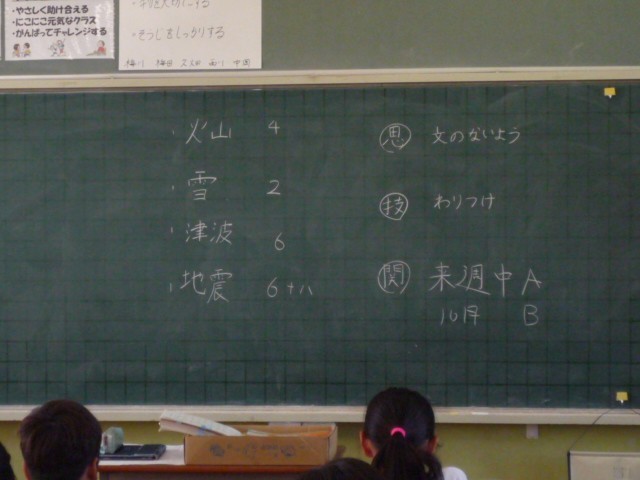 ・やさしく助け合える
・にこにこ元気なクラス
・がんばってチャレンジする
・そうじをしっかりする
・火山 4
・雪 2
・津波 6
・地震 6+八
思 文のないよう
技 わりつけ
関 来週中 A
10月 B